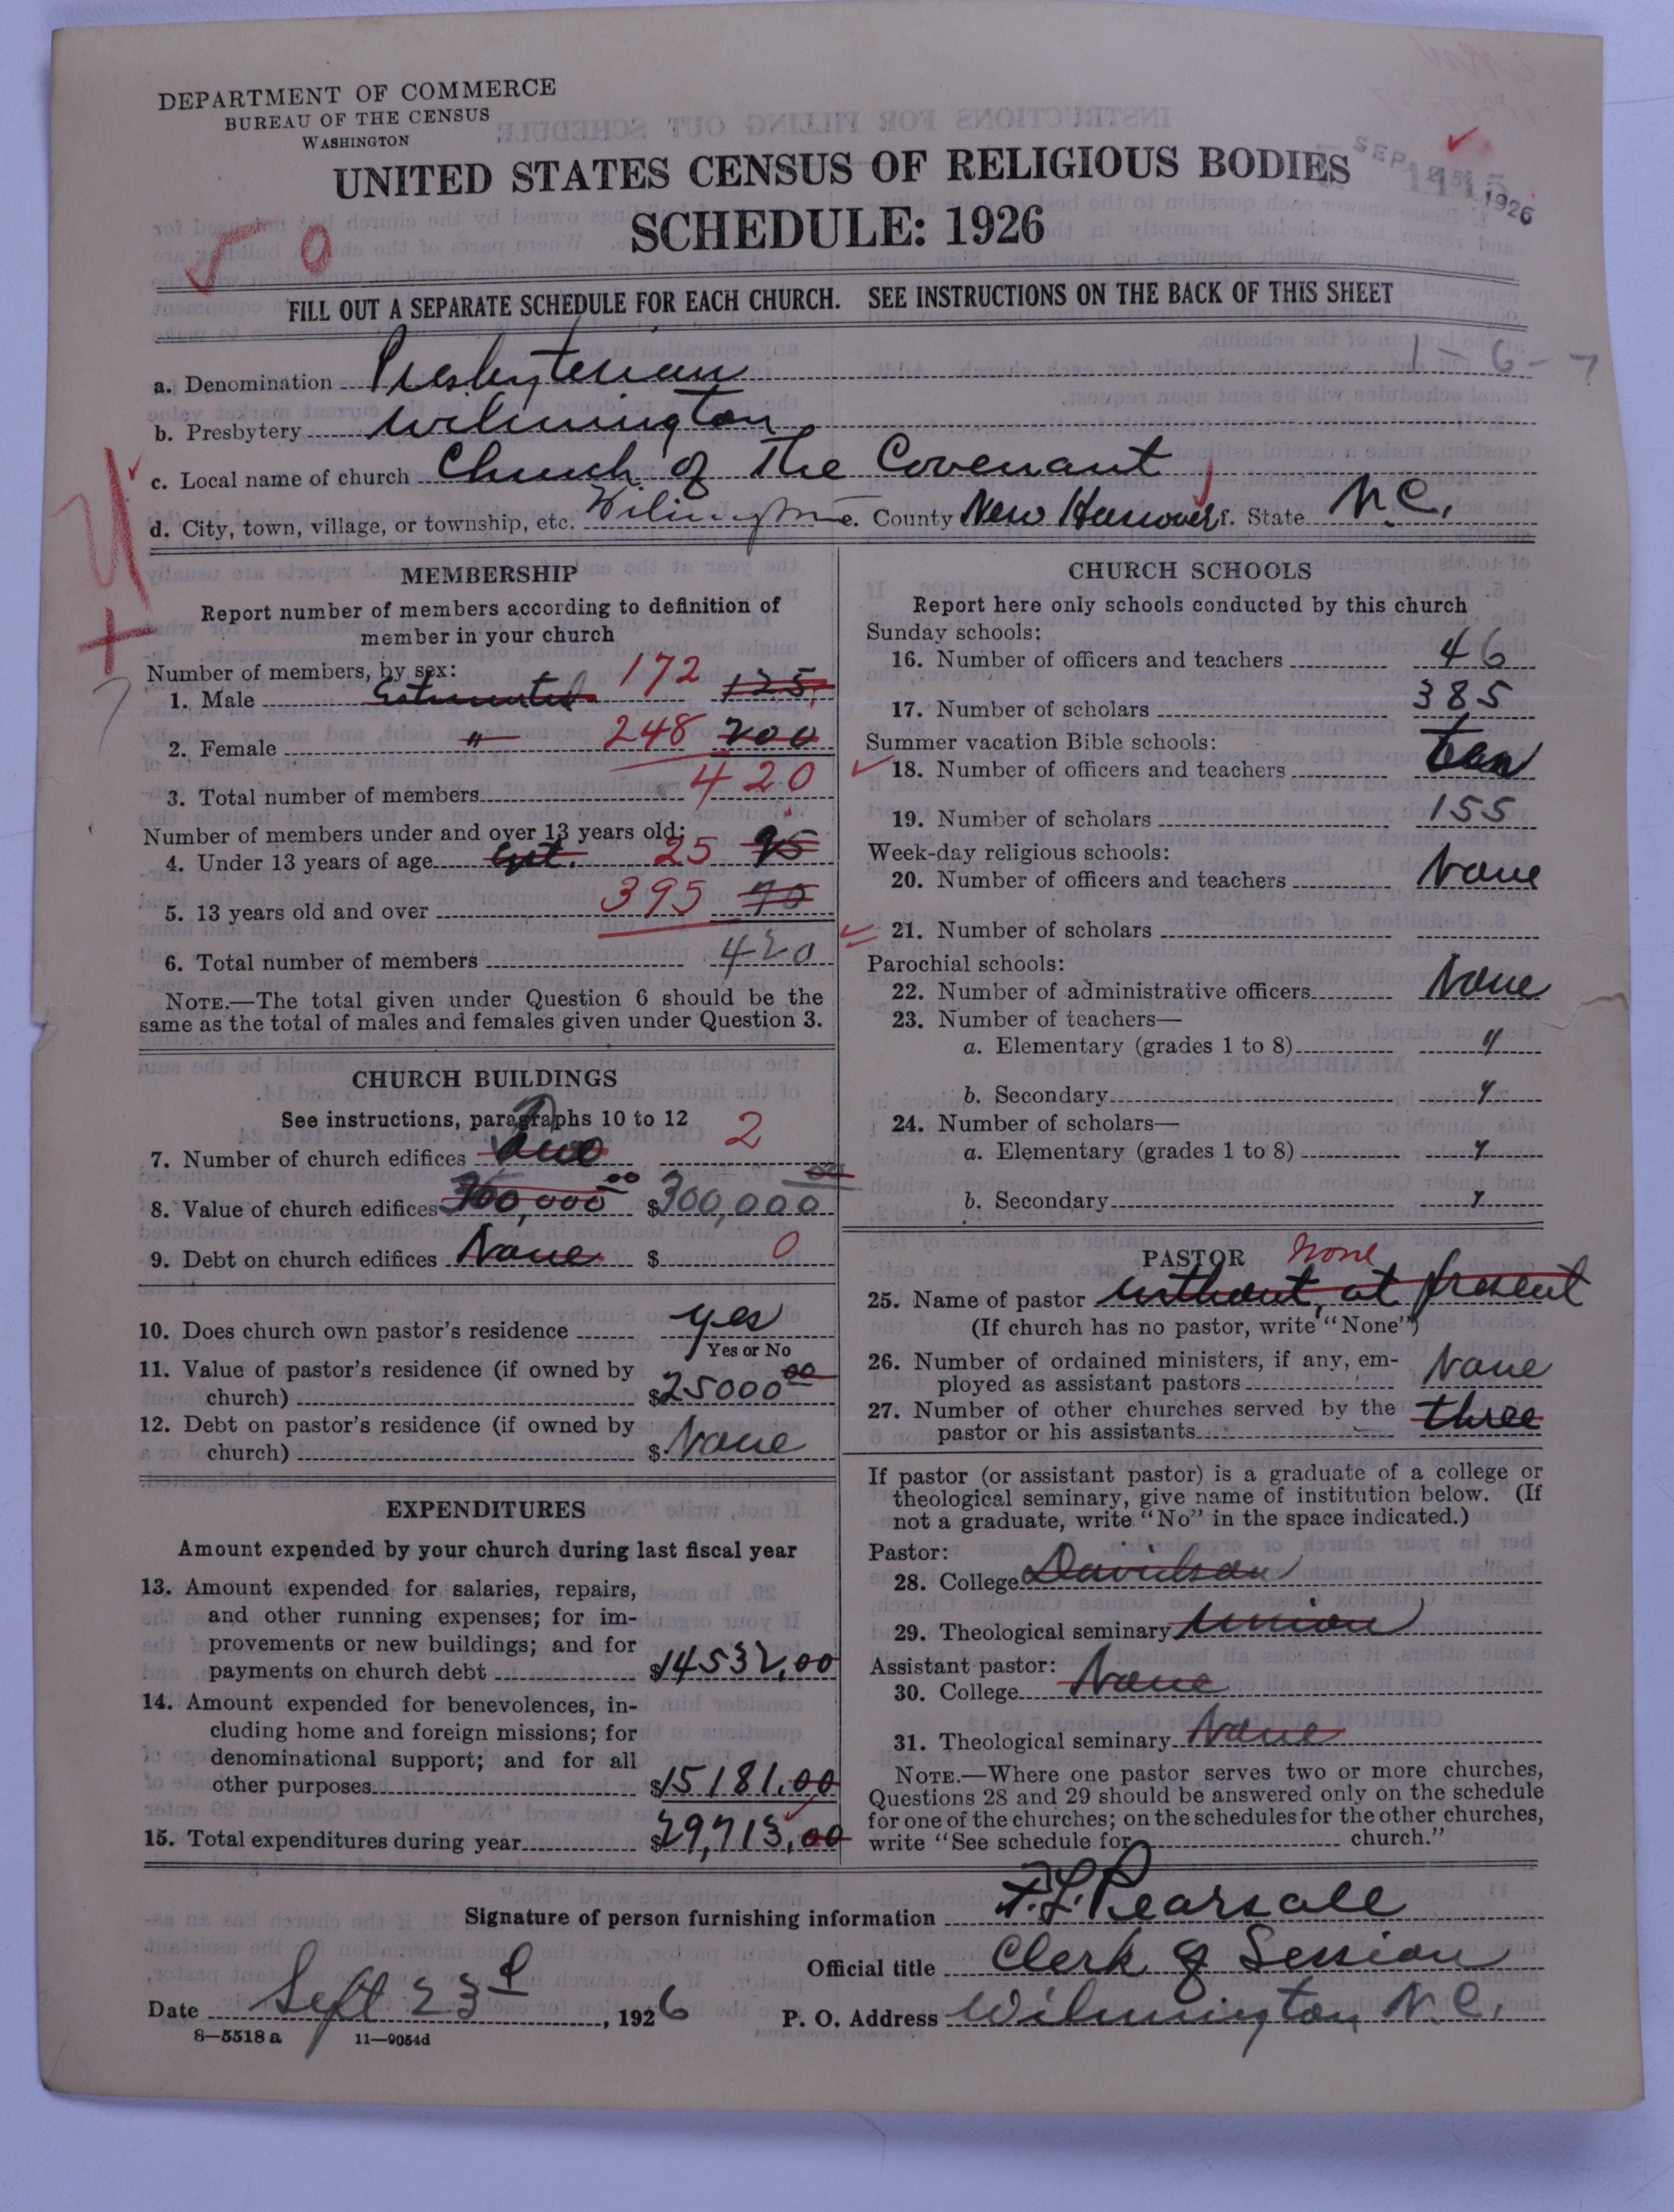 DEPARTMENT OF COMMERCE
BUREAU OF THE CENSUS
WASHINGTON
UNITED STATES CENSUS OF RELIGIOUS BODIES
SCHEDULE: 1926
SEP 25 1926
FILL OUT A SEPARATE SCHEDULE FOR EACH CHURCH. SEE INSTRUCTIONS ON THE BACK OF THIS SHEET
1-6-7
a. Denomination Presbyterian
b. Presbytery Wilmington
c. Local name of church Church of The Covenant
d. City, town, village, or township, etc. Wilmington e. County New Hanover f. State N.C.
MEMBERSHIP
Report number of members according to definition of
member in your church
Number of members, by sex:
1. Male Estimated 172 125
2. Female " 248 200
3. Total number of members 420
Number of members under and over 13 years old:
4. Under 13 years of age Est. 25
5. 13 years old and over 395
6. Total number of members 420
NOTE.—The total given under Question 6 should be the
same as the total of males and females given under Question 3.
CHURCH BUILDINGS
See instructions, paragraphs 10 to 12
7. Number of church edifices 2
8. Value of church edifices 300,000 00 $300,000 00
9. Debt on church edifices None $ 0
10. Does church own pastor's residence yes
Yes or No
11. Value of pastor's residence (if owned by
church) $25000 00
12. Debt on pastor's residence (if owned by
church) $ None
EXPENDITURES
Amount expended by your church during last fiscal year
13. Amount expended for salaries, repairs,
and other running expenses; for im-
provements or new buildings; and for
payments on church debt $14532.00
14. Amount expended for benevolences, in-
cluding home and foreign missions; for
denominational support; and for all
other purposes $15181.00
15. Total expenditures during year $29,713.00
CHURCH SCHOOLS
Report here only schools conducted by this church
Sunday schools:
16. Number of officers and teachers 46
17. Number of scholars 385
Summer vacation Bible schools:
18. Number of officers and teachers ten
19. Number of scholars 155
Week-day religious schools:
20. Number of officers and teachers None
21. Number of scholars
Parochial schools:
22. Number of administrative officers None
23. Number of teachers—
a. Elementary (grades 1 to 8) "
b. Secondary "
24. Number of scholars—
a. Elementary (grades 1 to 8) "
b. Secondary "
PASTOR None
25. Name of pastor without, at present
(If church has no pastor, write "None")
26. Number of ordained ministers, if any, em-
ployed as assistant pastors None
27. Number of other churches served by the
pastor or his assistants three
If pastor (or assistant pastor) is a graduate of a college or
theological seminary, give name of institution below. (If
not a graduate, write "No" in the space indicated.)
Pastor:
28. College Davidson
29. Theological seminary Union
Assistant pastor:
30. College None
31. Theological seminary None
NOTE.—Where one pastor serves two or more churches,
Questions 28 and 29 should be answered only on the schedule
for one of the churches; on the schedules for the other churches,
write "See schedule for church."
Signature of person furnishing information F. L. Pearsall
Official title Clerk of Session
Date Sept 23d, 1926 P. O. Address Wilmington N.C.
8—5518 a 11—9054d